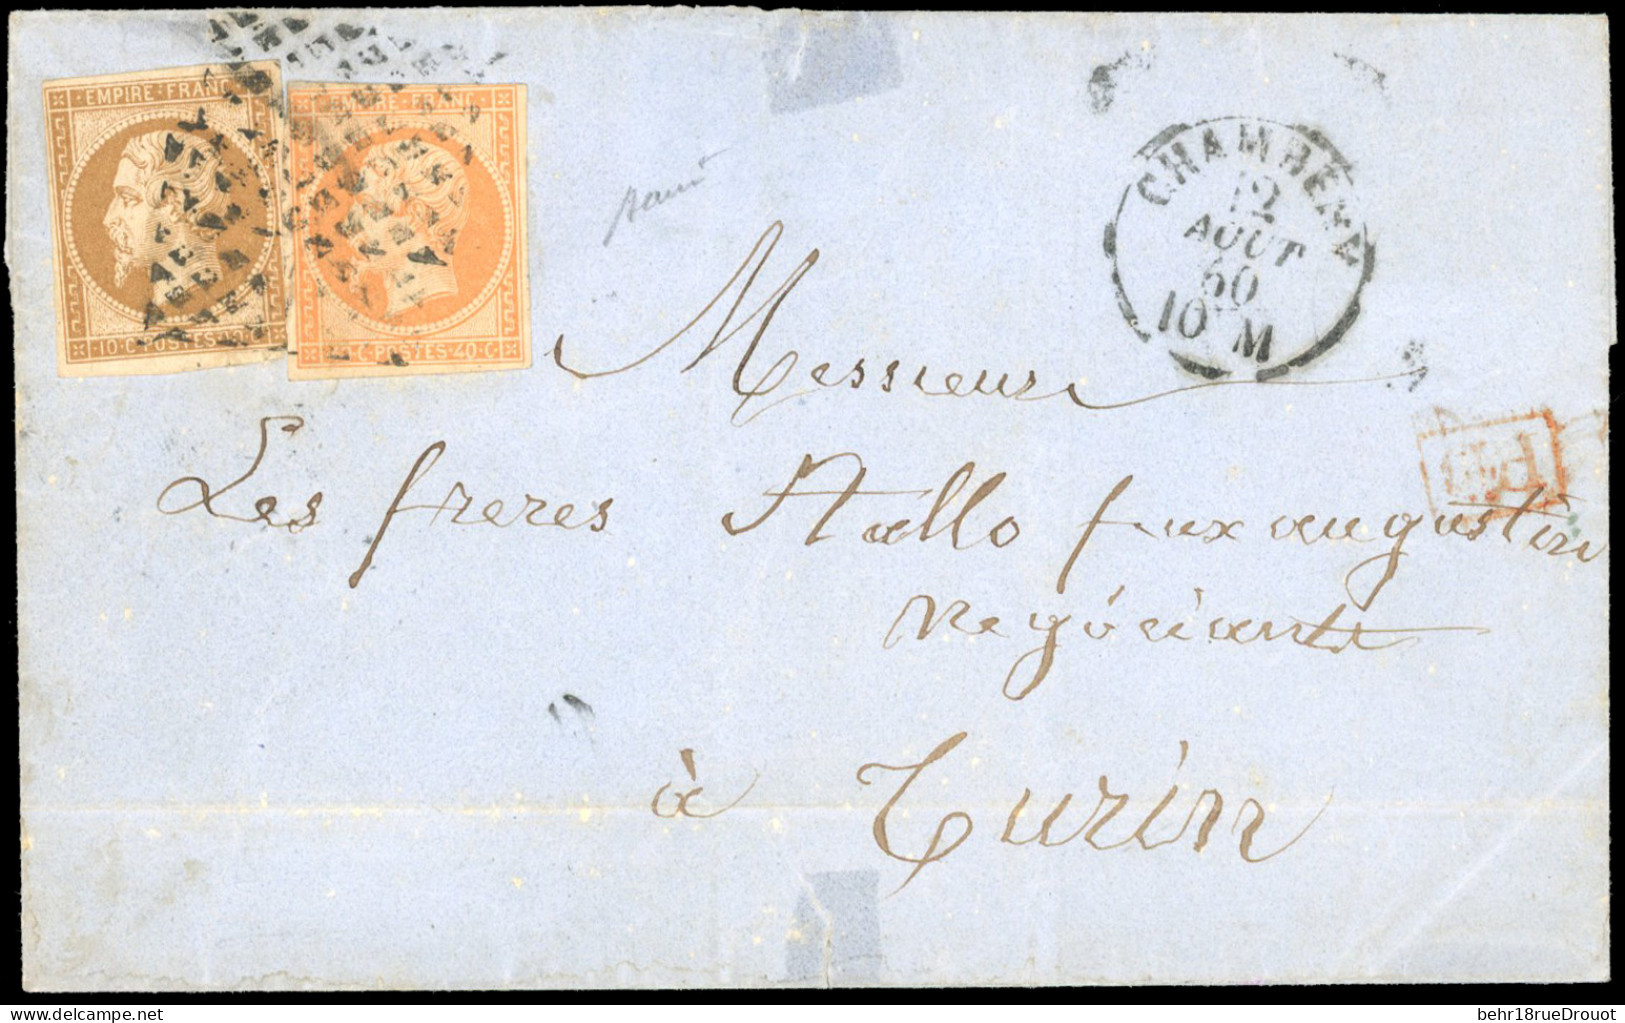 EMPIRE · FRANC
10 · C · POSTES · 10 · C
EMPIRE · FRANC
C · POSTES · 40 · C
CHAMBÉRY
12
AOUT
60
10 M
Messieurs
Les freres Stallo feux augustin
Negóciants
à Turin
P.D.
behr18rueDrouot